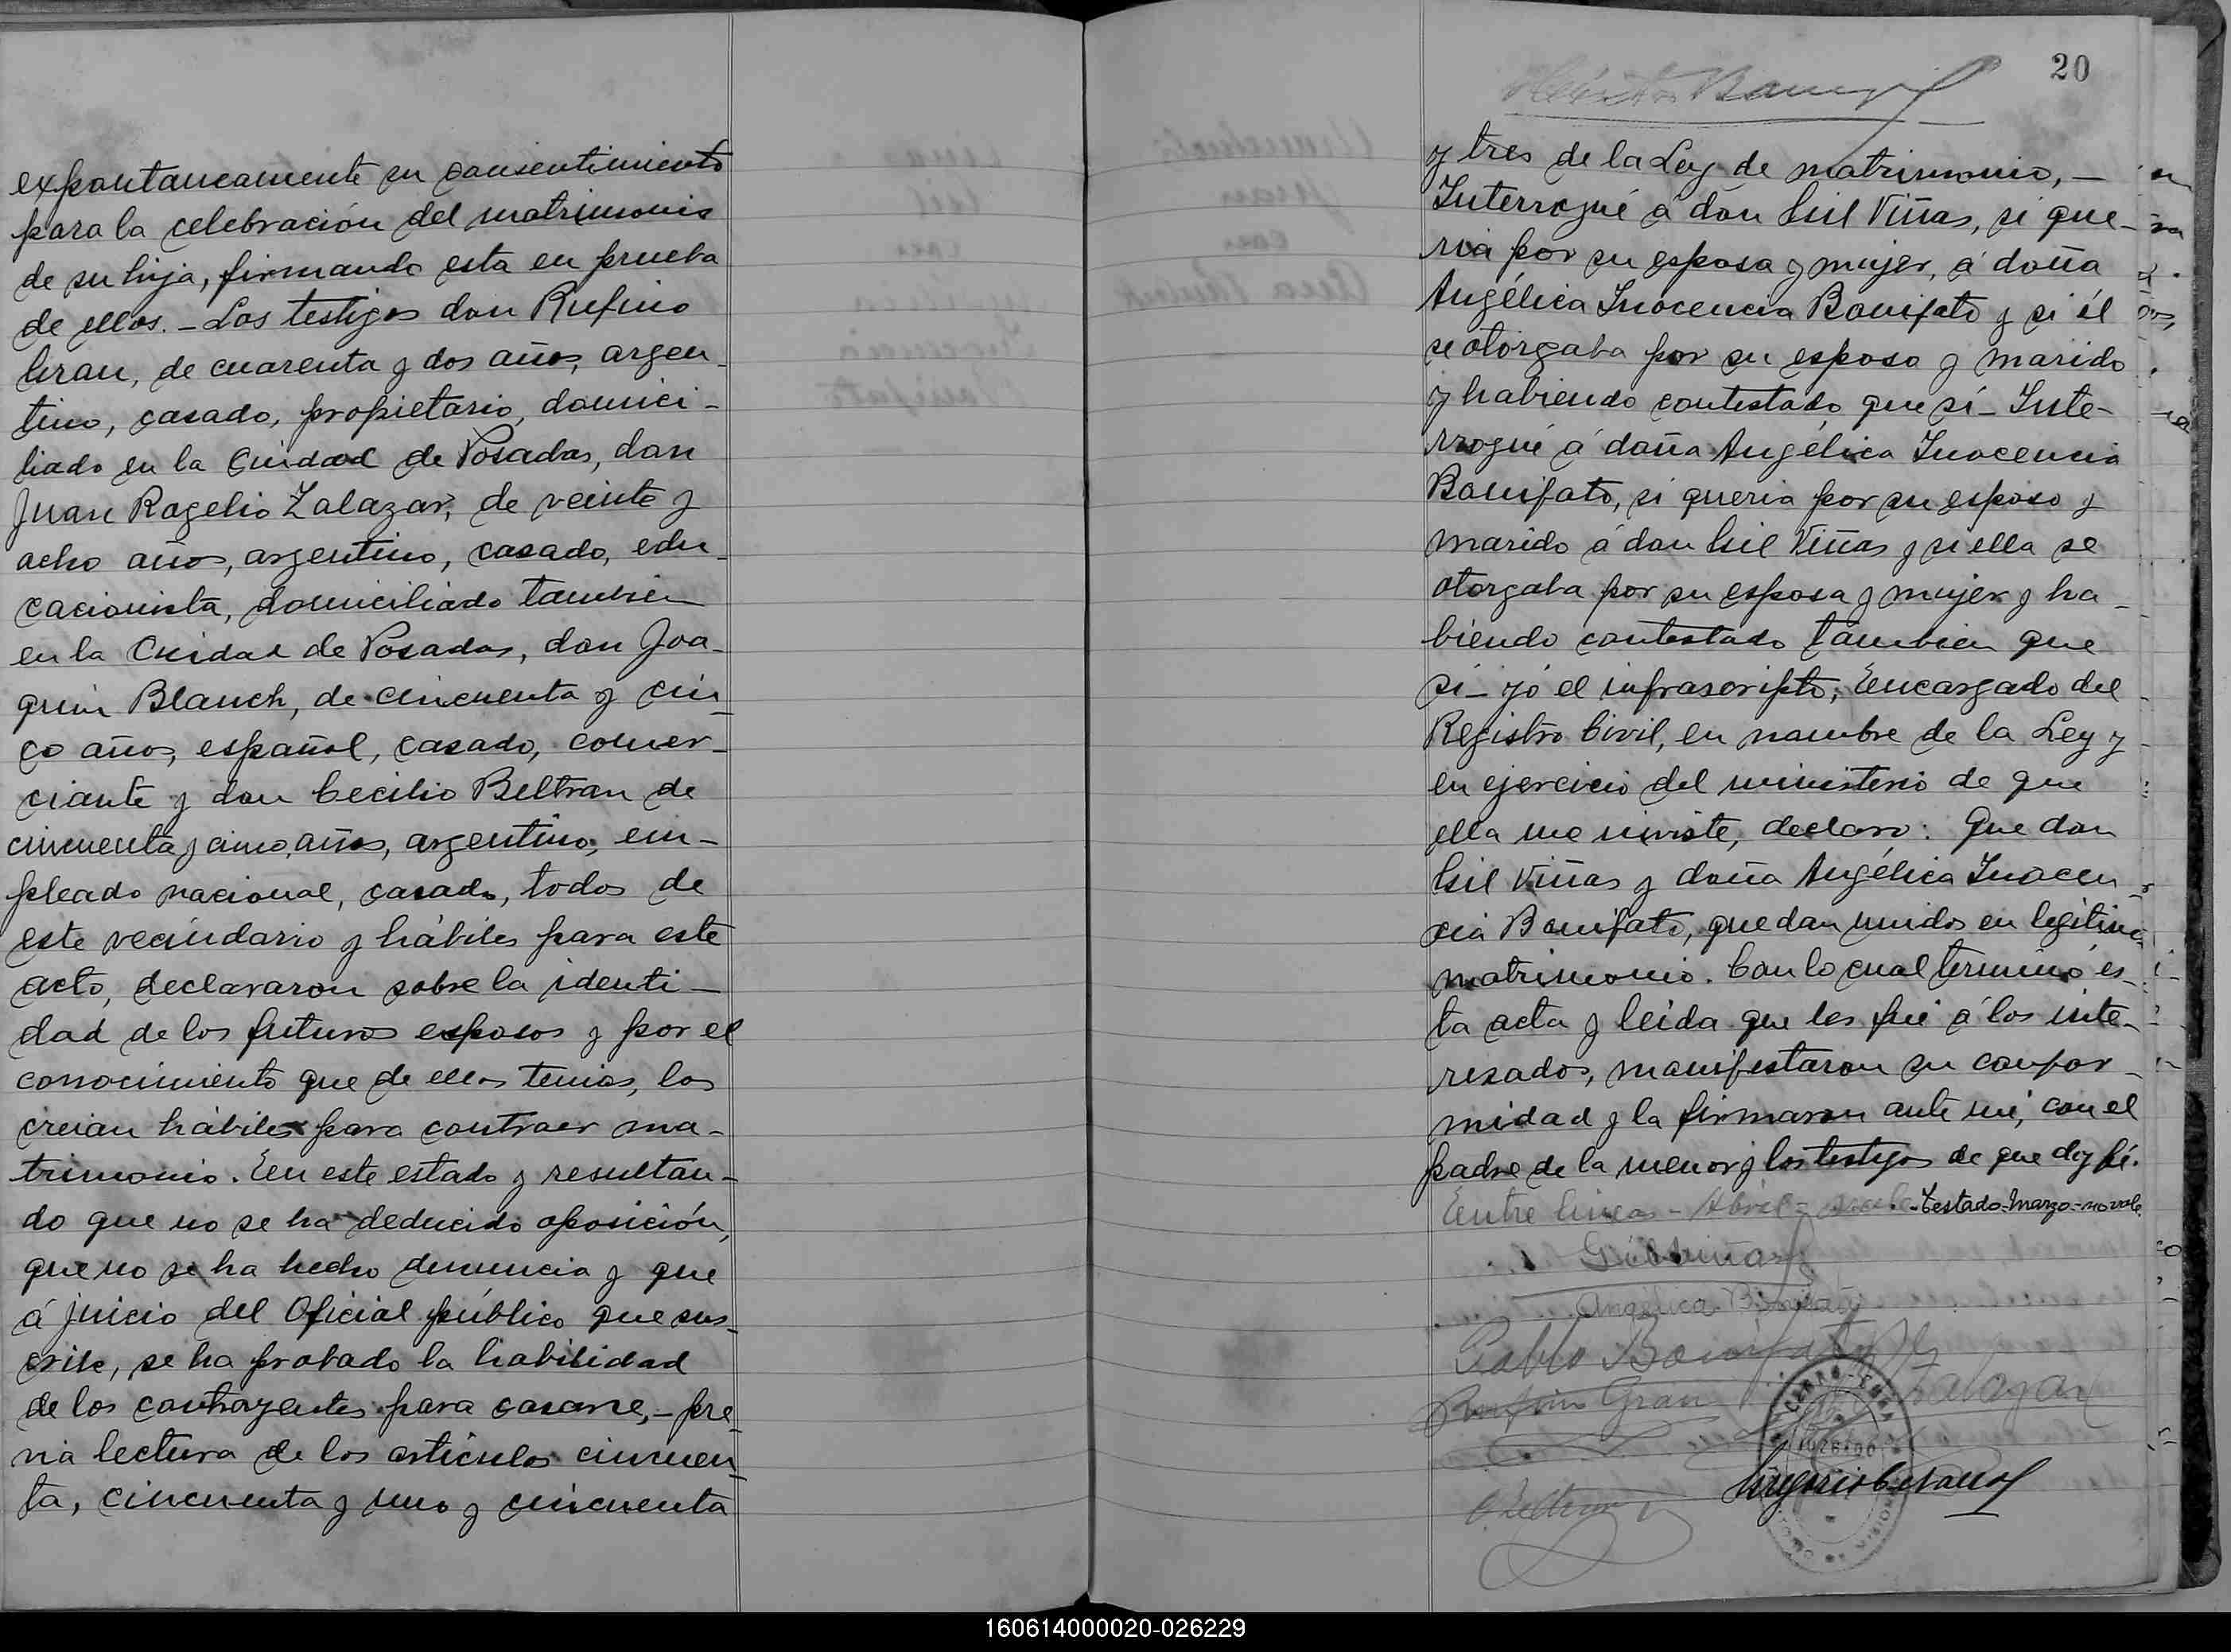 expontaneamente su consentimiento
para la celebración del matrimonio
de su hija, firmando esta en prueba
de ellos. - Los testigos don Rufino
Gran, de cuarenta y dos años, argen-
tino, casado, propietario, domici-
liado en la Ciudad de Posadas, don
Juan Rogelio Zalazar, de veinte y
ocho años, argentino, casado, edu-
cacionista, domiciliado tambien
en la Ciudad de Posadas, don Joa-
quin Blanch, de cincuenta y cin-
co años, español, casado, comer-
ciante y don Cecilio Beltran de
cincuenta y cinco años, argentino, em-
pleado nacional, casado, todos de
este vecindario y hábiles para este
acto, declararon sobre la identi-
dad de los futuros esposos y por el
conocimiento que de ellos tenias, los
creian hábiles para contraer ma-
trimonio. En este estado y resultan-
do que no se ha deducido oposición,
que no se ha hecho denuncia y que
á juicio del Oficial público que sus-
cribe, se ha probado la habilidad
de los contrayentes para casarse, - pre-
via lectura de los articulos cincuen-
ta, cincuenta y uno y cincuenta
20
y tres de la Ley de matrimonio, -
Interrogué á don Gil Viñas, si que-
ria por su esposa y mujer, á doña
Angélica Inocencia Bonifato y si él
se otorgaba por su esposo y marido
y habiendo contestado que sí - Inte-
rrogué á doña Angélica Inocencia
Bonifato, si queria por su esposo y
marido á don Gil Viñas y si ella se
otorgaba por su esposa y mujer y ha-
biendo contestado tambien que
sí - yó el infrascripto, Encargado del
Registro Civil, en nombre de la Ley y
en ejercicio del ministerio de que
ella me inviste, declaro: Que don
Gil Viñas y doña Angélica Inocen-
cia Bonifato, quedan unidos en legitimo
matrimonio. Con lo cual terminó es-
ta acta y leida que les fué á los inte-
resados, manifestaron su confor-
midad y la firmaron ante mí, con el
padre de la menor y los testigos de que doy fé.
Entre lineas - Abril - vale. - Testado - Marzo - no vale.
Gil Viñas
Angélica Bonifato
Pablo Bonifato
Rufino Gran Zalazar
C Beltran
160614000020-026229